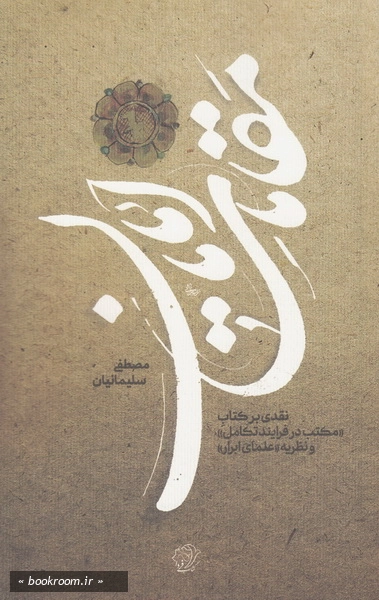 مقامات امامان
مصطفی
سلیمانیان
نقدی بر کتاب
«مکتب در فرایند تکامل»
و نظریه «علمای ابرار»
« bookroom.ir »